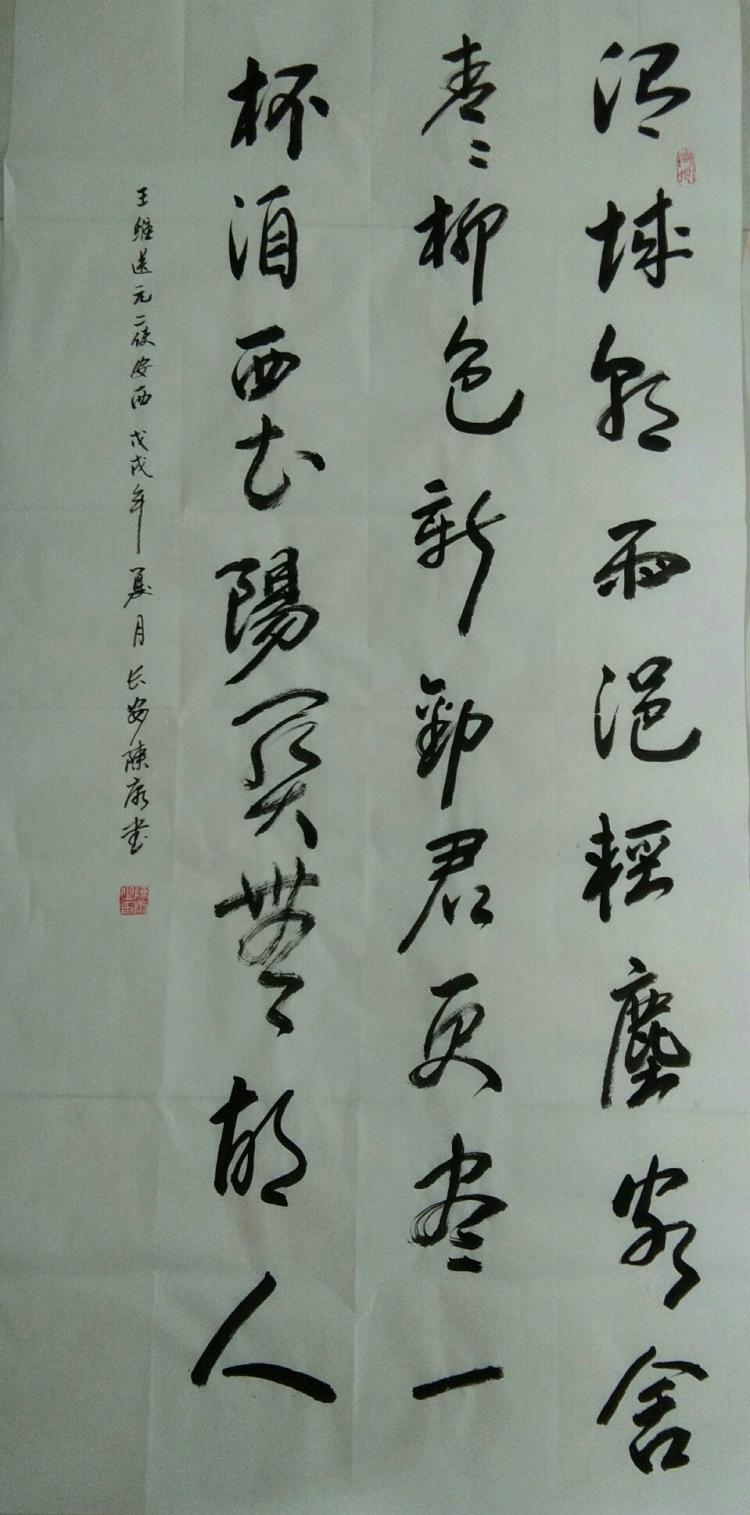 渭城朝雨浥輕塵客舍
青〻柳色新勸君更尽一
杯酒西出陽関無故人
王維送元二使安西 戊戌年夏月长安陳康書